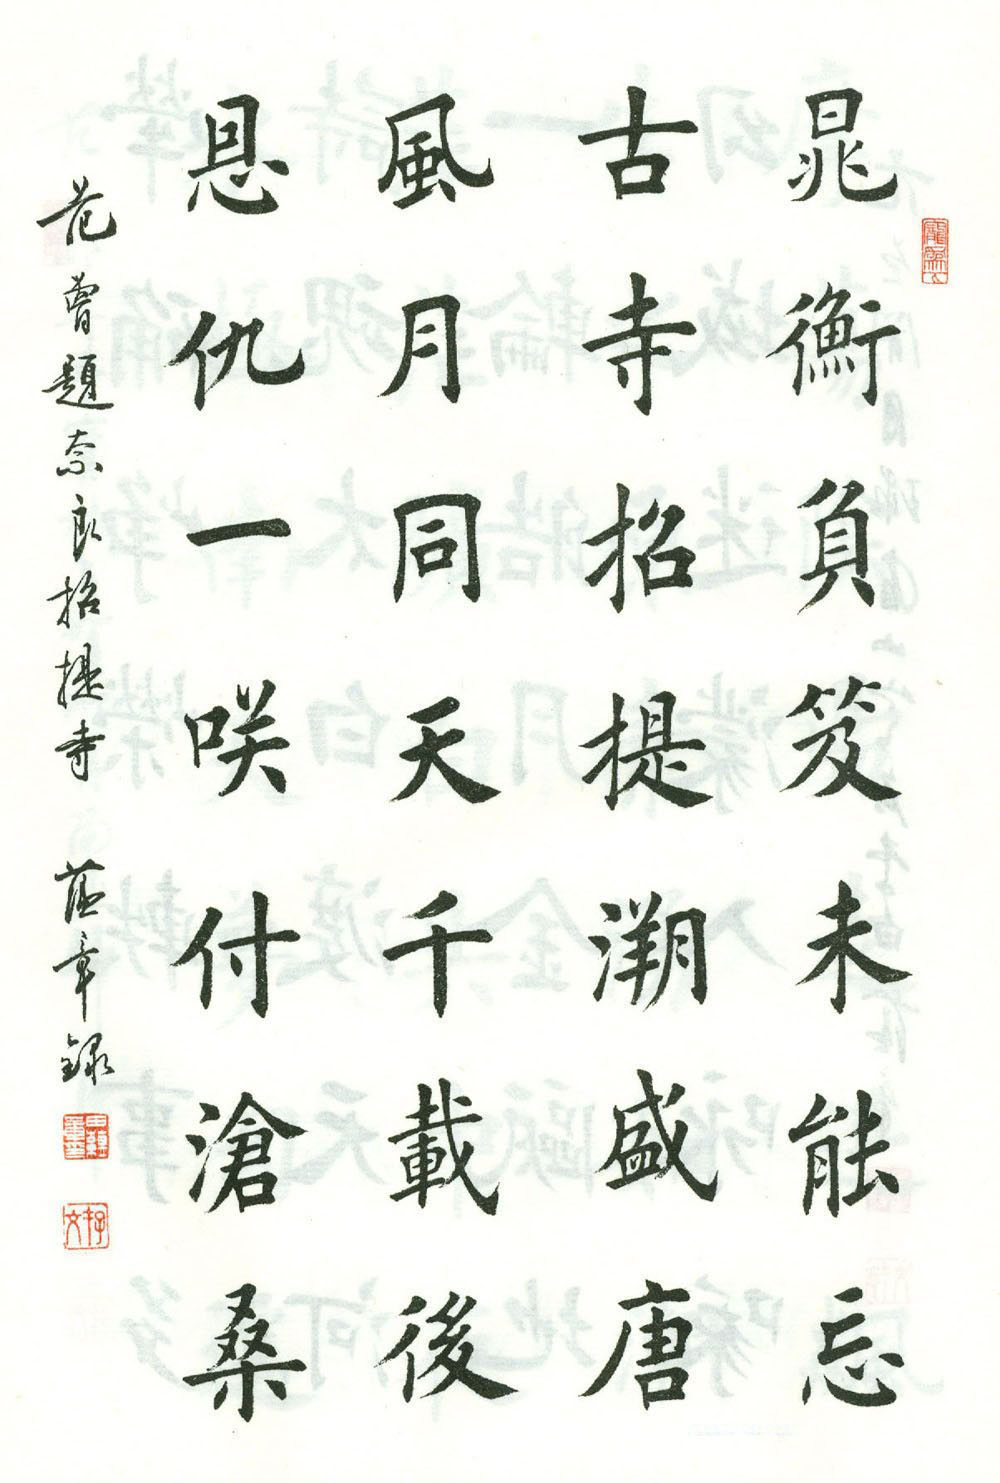 晁衡負笈未能忘
古寺招提溯盛唐
風月同天千載後
恩仇一咲付滄桑
范曾題奈良招提寺 蘊章錄